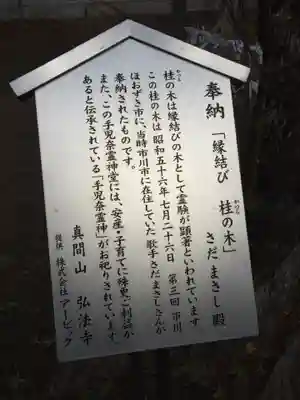 奉納「縁結び 桂の木」
さだまさし殿
桂の木は縁結びの木として霊験が顕著といわれています
この桂の木は昭和五十六年七月二十六日 第三回市川
ほおずき市に、当時市川市に在住していた歌手さだまさしさんが
奉納されたものです。
また、この手児奈霊神堂には、安産・子育てに殊更ご利益が
あると伝承されている「手児奈霊神」がお祀りされています
真間山 弘法寺
提供 株式会社アービック